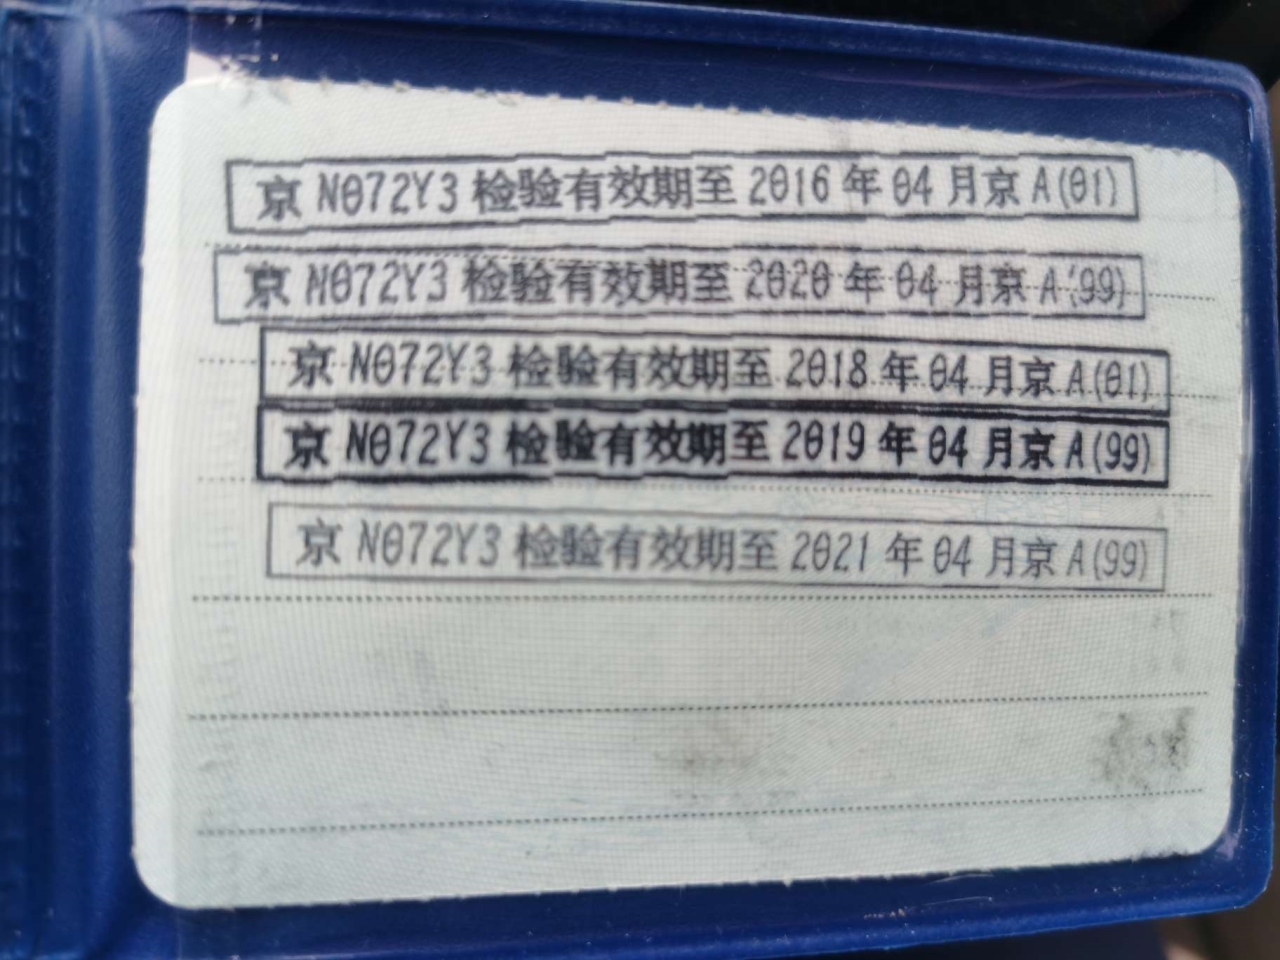 京 N072Y3 检验有效期至 2016 年 04 月京 A(01)
京 N072Y3 检验有效期至 2020 年 04 月京 A(99)
京 N072Y3 检验有效期至 2018 年 04 月京 A(01)
京 N072Y3 检验有效期至 2019 年 04 月京 A(99)
京 N072Y3 检验有效期至 2021 年 04 月京 A(99)